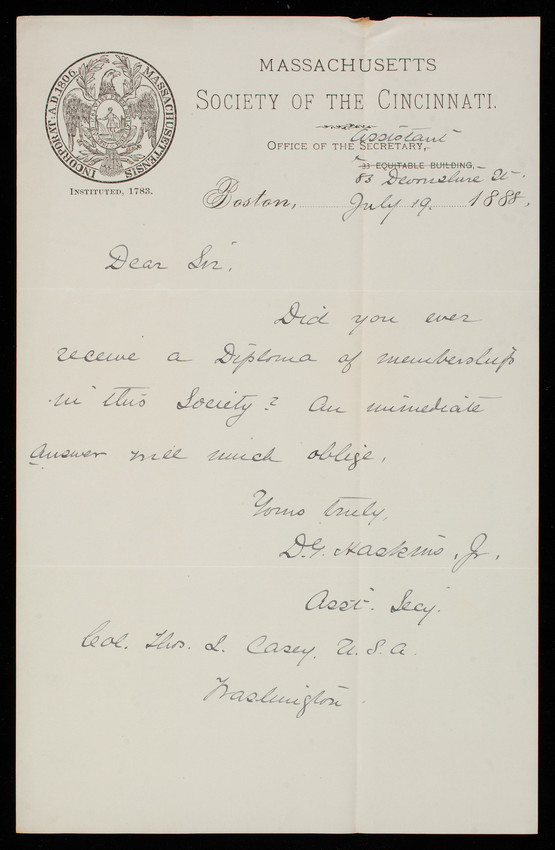 INCORPORAT: A.D. 1806. MASSACHUSETTENSIS
INSTITUTED, 1783.
MASSACHUSETTS
SOCIETY OF THE CINCINNATI.
Assistant
OFFICE OF THE SECRETARY,
33 EQUITABLE BUILDING,
83 Devonshire St.
Boston, July 19. 1888.
Dear Sir,
Did you ever
receive a Diploma of membership
in this Society? An immediate
answer will much oblige.
Yours truly,
D.G. Haskins, Jr.
Asst. Secy.
Col. Thos. L. Casey. U.S.A.
Washington.